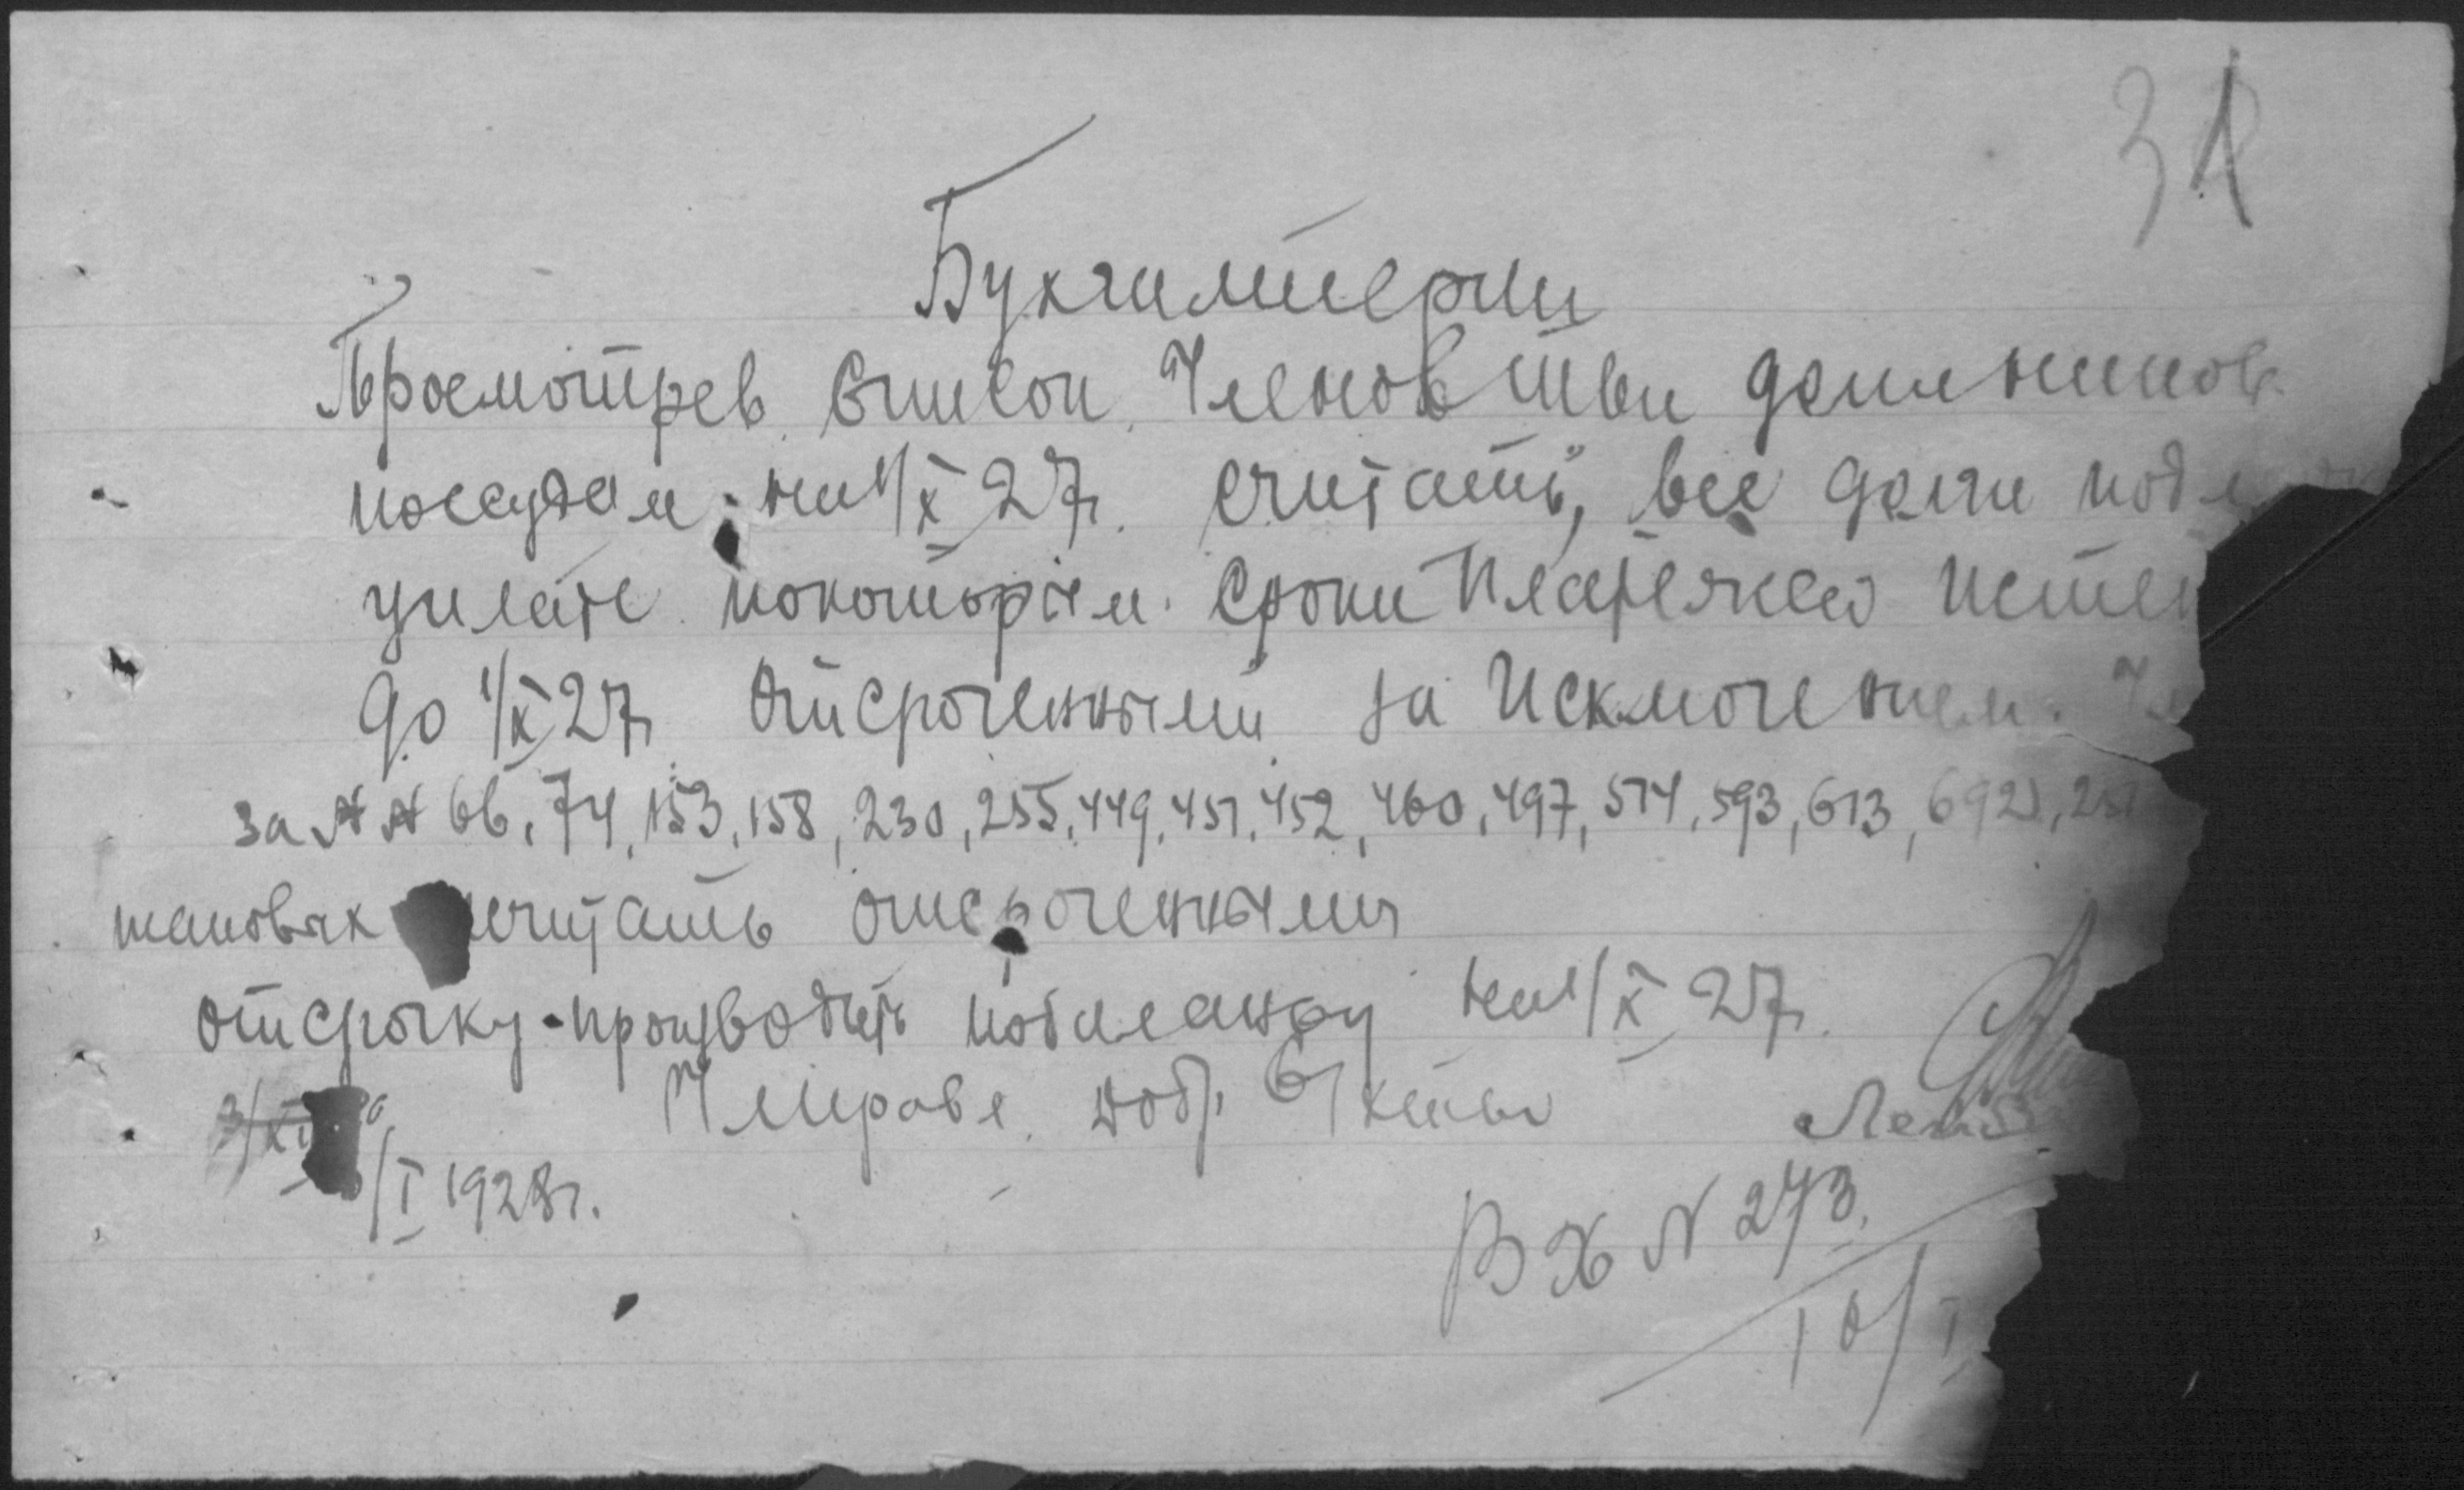 31
Бухгалтерии
Просмотрев список Членов Т-ва должников
по ссудам на 1/X 27г. считать, все долги подл
уплате покоторым сроки Платежей истек
до 1/X 27г отсроченными за Исключением. Чл
за № № 66, 74, 153, 158, 230, 255, 449, 451, 452, 460, 497, 514, 593, 613, 692, 257
таковых считать отсроченными
отсрочку производить побалансу на 1/X 27г.
Член Правл.
/I 1928г.
ВХ N 273.
10/I